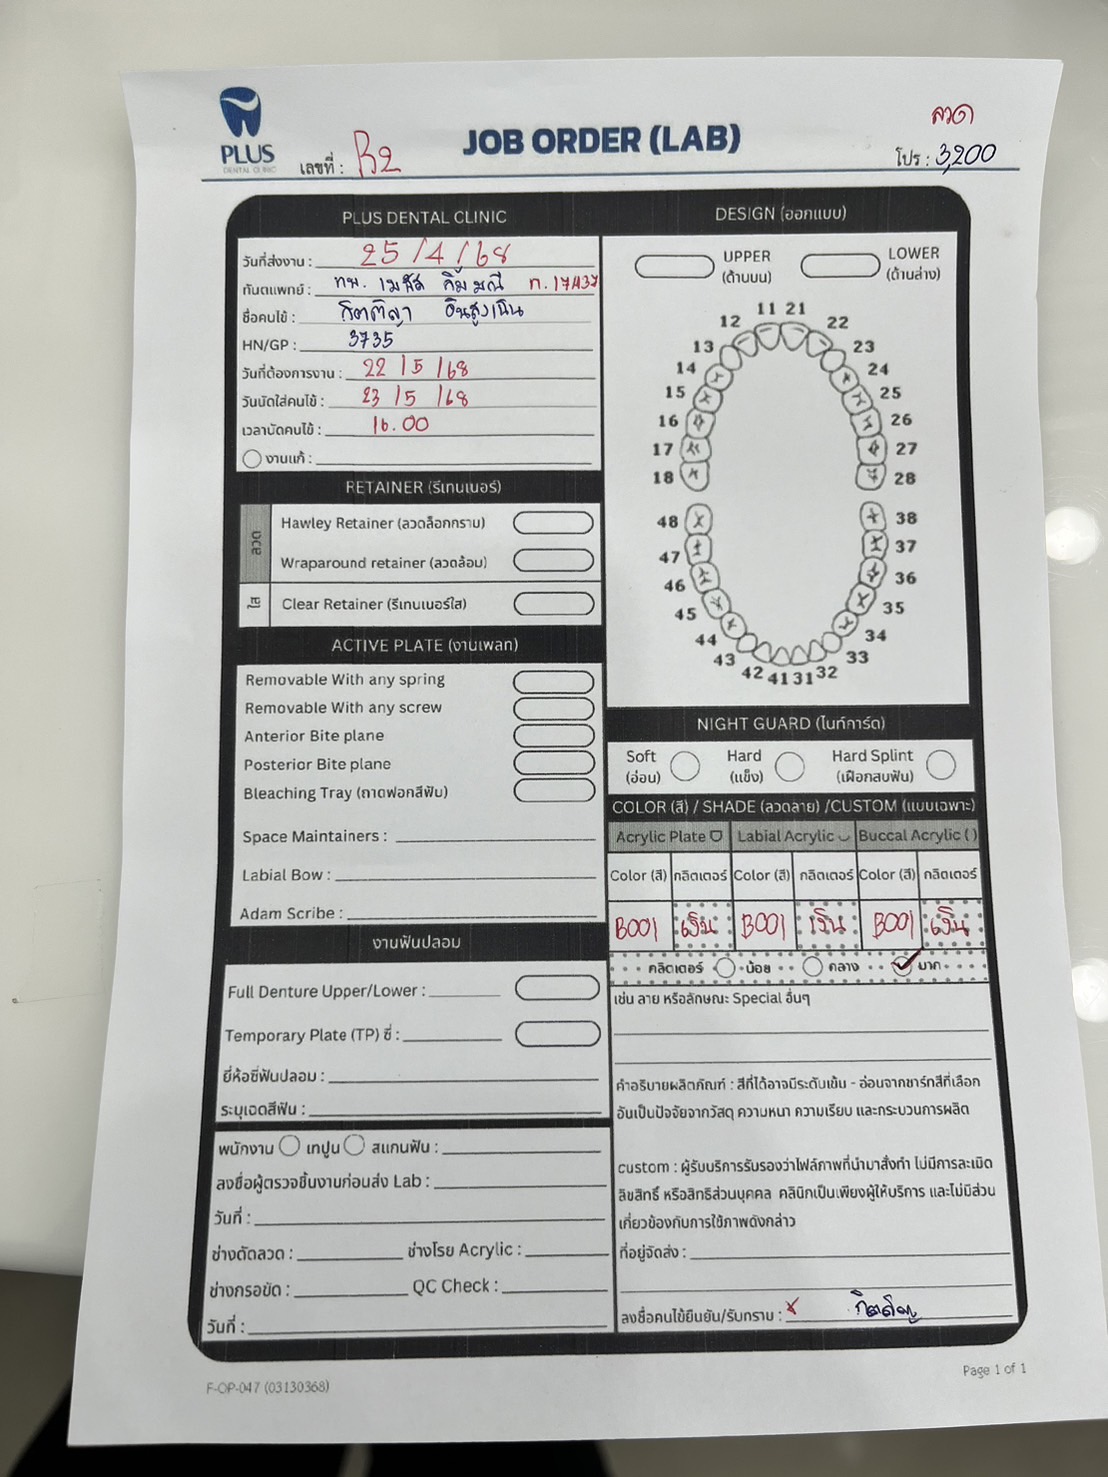 PLUS
DENTAL CLINIC
เลขที่ : R2
JOB ORDER (LAB)
ลวด
โปร : 3,200
PLUS DENTAL CLINIC
วันที่ส่งงาน : 25/4/68
ทันตแพทย์ : ทพ. เมธัส ลิ้มมณี ท.17437
ชื่อคนไข้ : กิตติญา อินสูงเนิน
HN/GP : 3735
วันที่ต้องการงาน : 22/5/68
วันนัดใส่คนไข้ : 23/5/68
เวลานัดคนไข้ : 16.00
งานแก้ :
RETAINER (รีเทนเนอร์)
ลวด
Hawley Retainer (ลวดล็อกกราม)
Wraparound retainer (ลวดล้อม)
ใส
Clear Retainer (รีเทนเนอร์ใส)
ACTIVE PLATE (งานเพลท)
Removable With any spring
Removable With any screw
Anterior Bite plane
Posterior Bite plane
Bleaching Tray (ถาดฟอกสีฟัน)
Space Maintainers :
Labial Bow :
Adam Scribe :
งานฟันปลอม
Full Denture Upper/Lower :
Temporary Plate (TP) ซี่ :
ยี่ห้อซี่ฟันปลอม :
ระบุเฉดสีฟัน :
พนักงาน เทปูน สแกนฟัน :
ลงชื่อผู้ตรวจชิ้นงานก่อนส่ง Lab :
วันที่ :
ช่างดัดลวด : ช่างโรย Acrylic :
ช่างกรอขัด : QC Check :
วันที่ :
DESIGN (ออกแบบ)
UPPER
(ด้านบน)
LOWER
(ด้านล่าง)
11 21
12 22
13 23
14 24
15 25
16 26
17 27
18 28
48 38
47 37
46 36
45 35
44 34
43 33
42 41 31 32
NIGHT GUARD (ไนท์การ์ด)
Soft
(อ่อน)
Hard
(แข็ง)
Hard Splint
(เฝือกสบฟัน)
COLOR (สี) / SHADE (ลวดลาย) /CUSTOM (แบบเฉพาะ)
Acrylic Plate Labial Acrylic Buccal Acrylic ( )
Color (สี) กลิตเตอร์ Color (สี) กลิตเตอร์ Color (สี) กลิตเตอร์
B001 เงิน B001 เงิน B001 เงิน
กลิตเตอร์ น้อย กลาง ✓ มาก
เช่น ลาย หรือลักษณะ Special อื่นๆ
คำอธิบายผลิตภัณฑ์ : สีที่ได้อาจมีระดับเข้ม - อ่อนจากชาร์ทสีที่เลือก
อันเป็นปัจจัยจากวัสดุ ความหนา ความเรียบ และกระบวนการผลิต
custom : ผู้รับบริการรับรองว่าไฟล์ภาพที่นำมาสั่งทำ ไม่มีการละเมิด
ลิขสิทธิ์ หรือสิทธิส่วนบุคคล คลินิกเป็นเพียงผู้ให้บริการ และไม่มีส่วน
เกี่ยวข้องกับการใช้ภาพดังกล่าว
ที่อยู่จัดส่ง :
ลงชื่อคนไข้ยืนยัน/รับทราบ : x
F-OP-047 (03130368)
Page 1 of 1